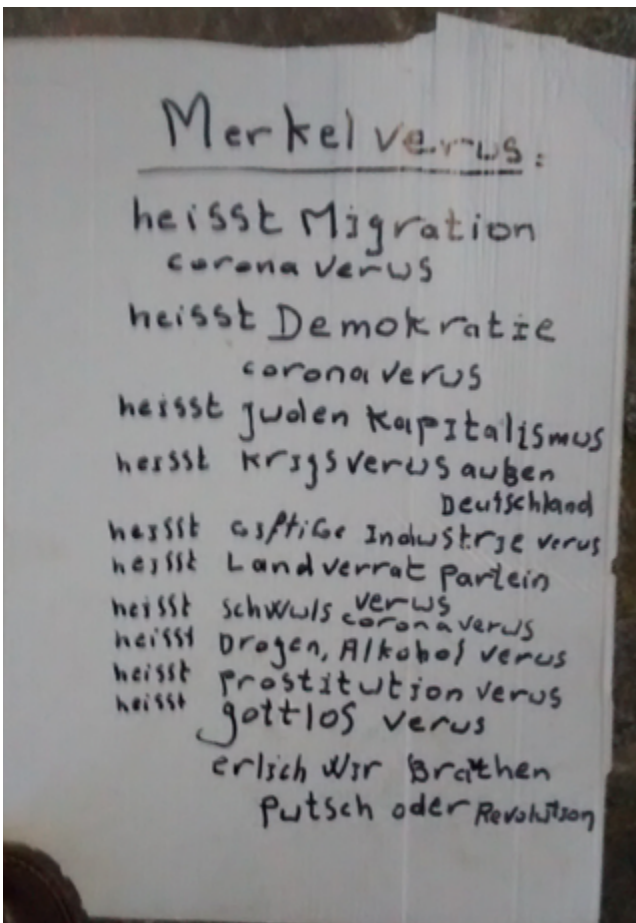 Merkel verus:
heisst Migration
corona verus
heisst Demokratie
corona verus
heisst juden Kapitalismus
heisst krigsverus außen
Deutschland
heisst giftige Industrie verus
heisst Landverrat partein
heisst schwuls verus
coronaverus
heisst Drogen, Alkohol verus
heisst prostitution verus
heisst gottlos verus
erlich wir Brathen
putsch oder Revolution